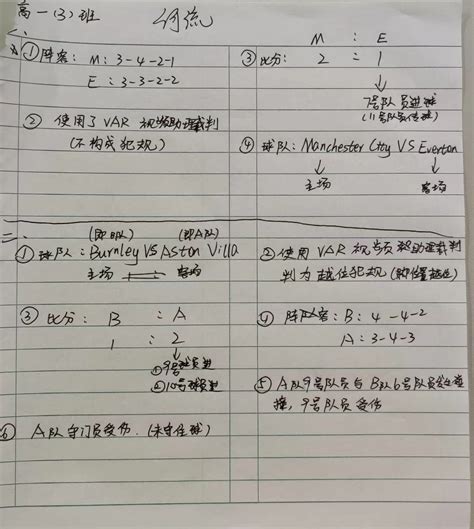 高一(3)班 何流
一、
①阵容: M: 3-4-2-1
E: 3-3-2-2
②使用了VAR视频助理裁判
(不构成犯规)
M : E
③比分: 2 = 1
7号队员进球
(11号队员传球)
④球队: Manchester City VS Everton
主场 客场
二、
(即B队) (即A队)
①球队: Burnley VS Aston Villa
主场 客场
②使用VAR视频助理裁判
判为越位犯规(
③比分: B : A
1 : 2
①9号球员进
②10号球员进
④阵容: B: 4-4-2
A: 3-4-3
⑤A队9号队员与B队6号队员发生碰
撞, 9号队员受伤
⑥A队守门员受伤.(未守住球)